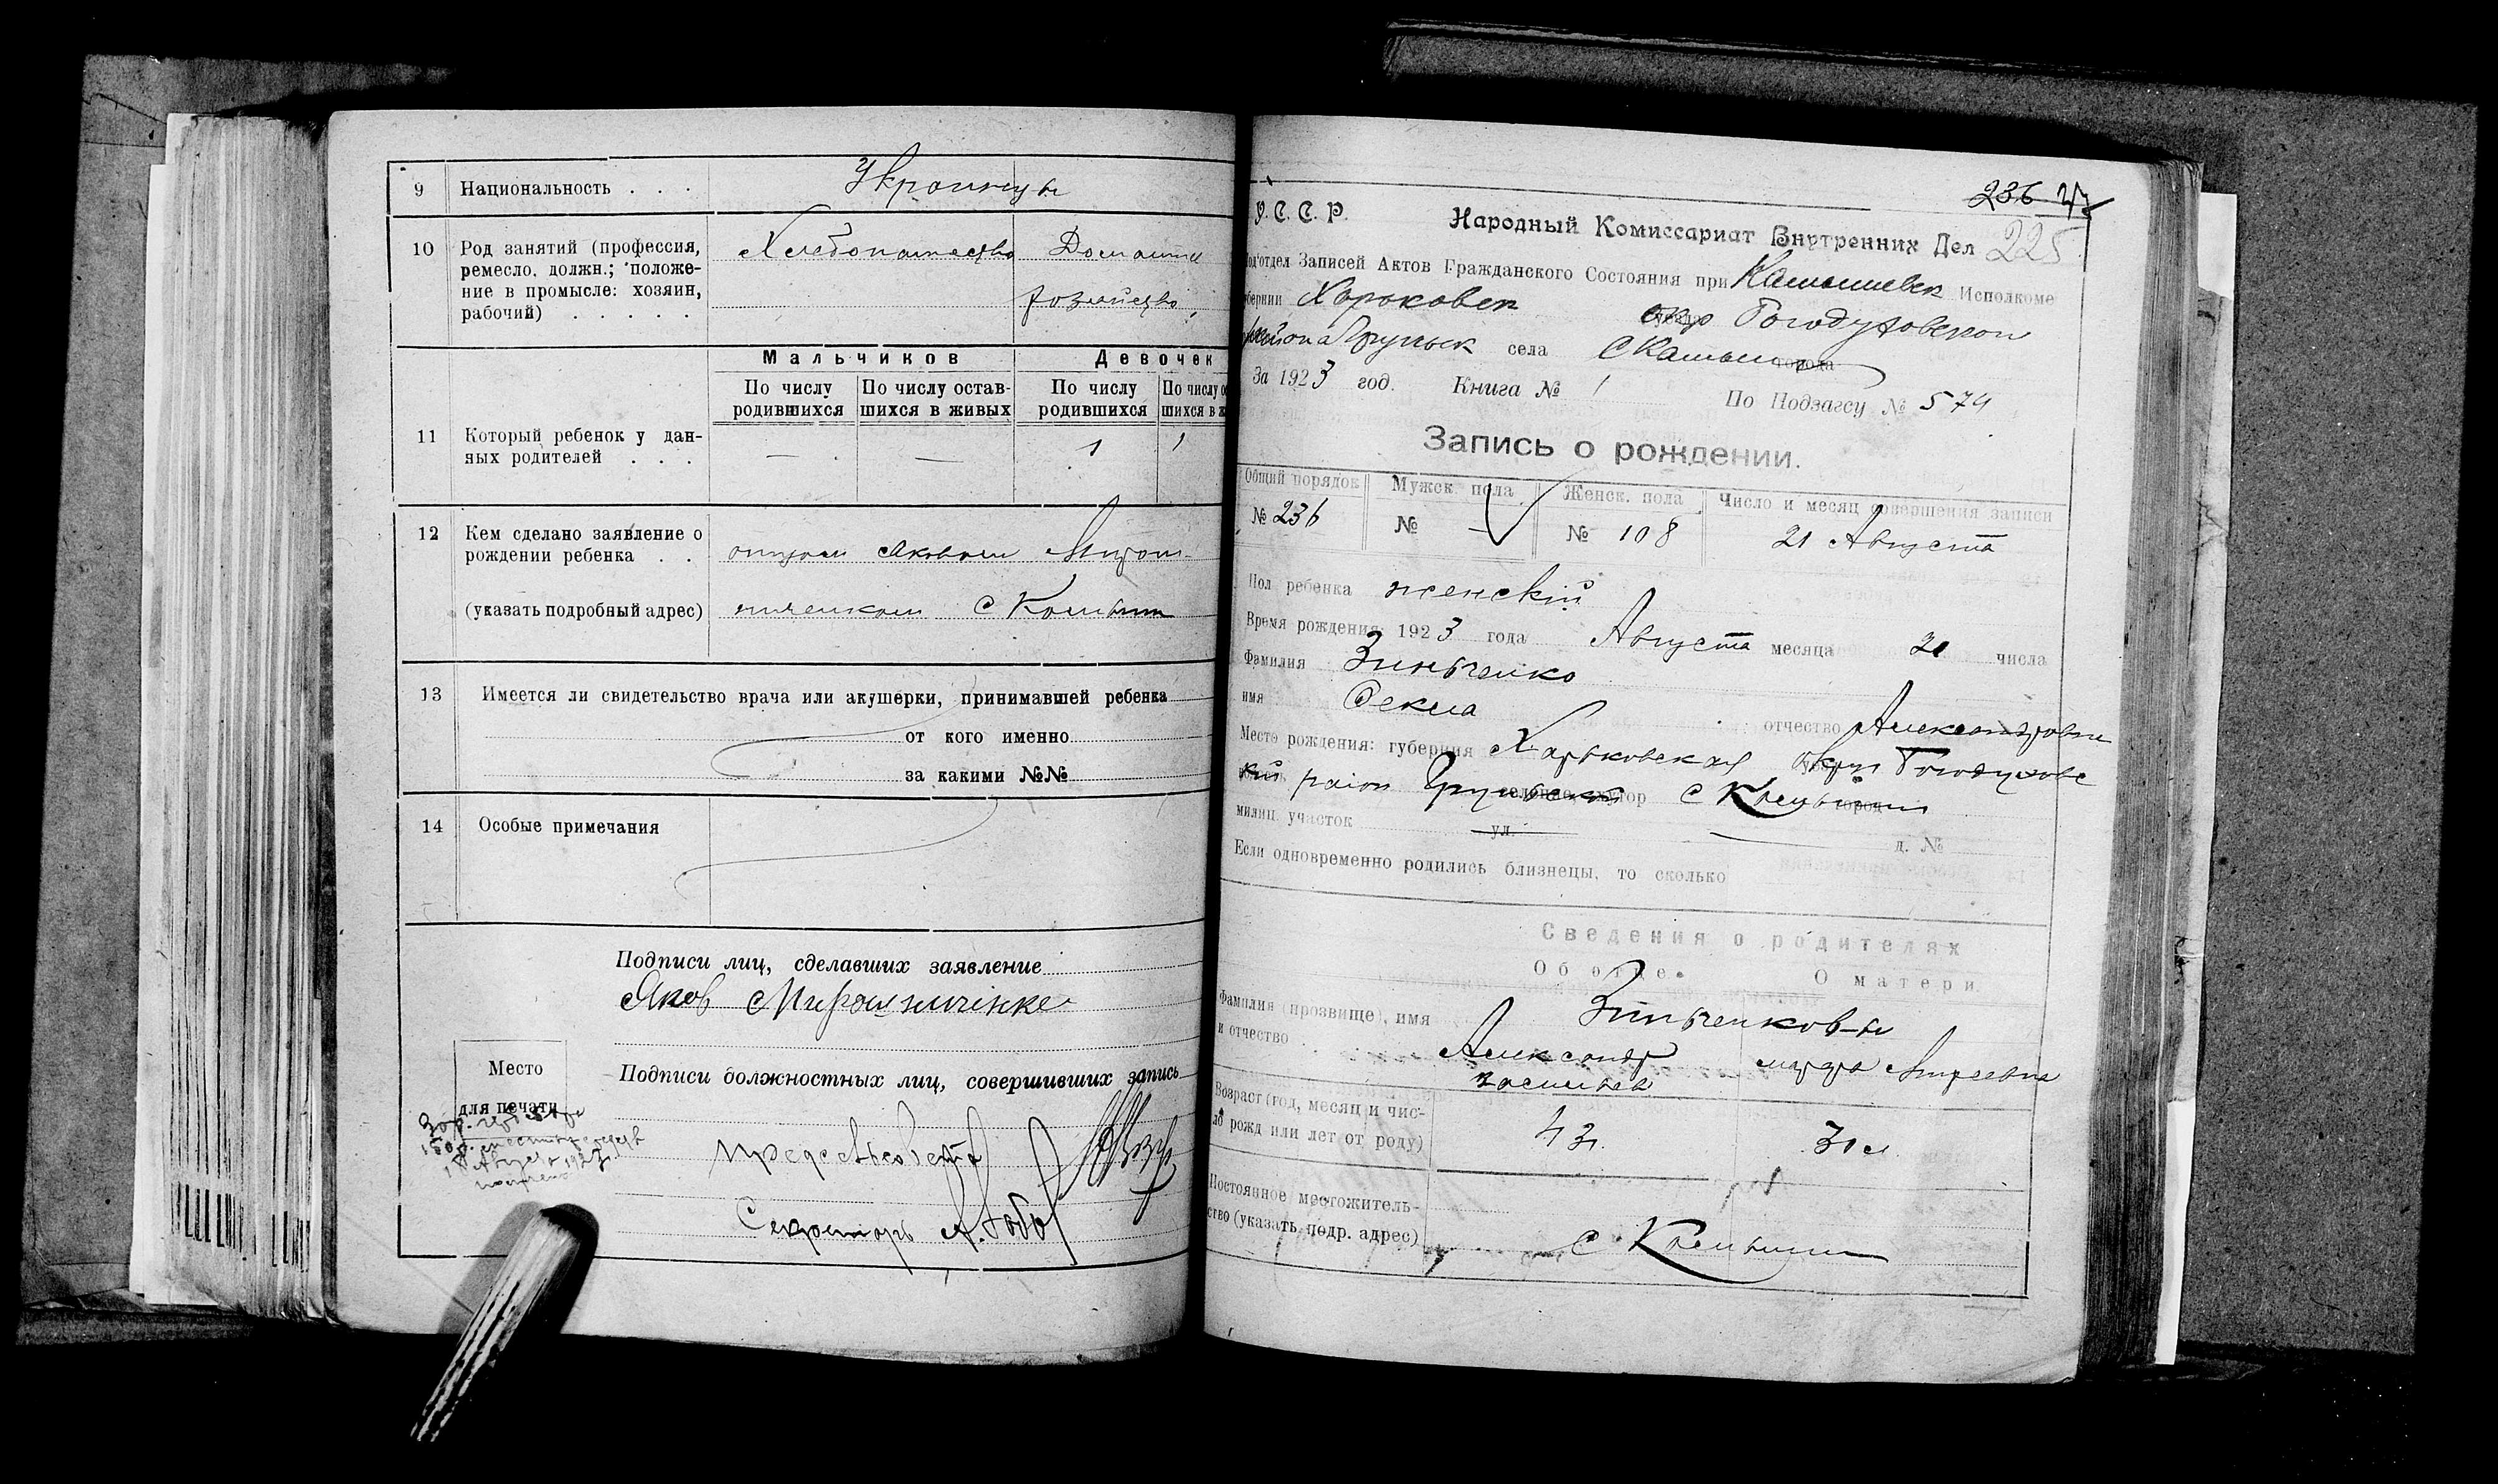 9 Национальность . . . Украинцы
10 Род занятий (профессия, Хлебопашество Домашнее
ремесло, должн.; положе-
ние в промысле: хозяин, хозяйство,
рабочий) . . . . .
Мальчиков Девочек
По числу По числу остав- По числу По числу
родившихся шихся в живых родившихся шихся в
11 Который ребенок у дан- — — 1 1
ных родителей . . .
12 Кем сделано заявление о
рождении ребенка . . отцом Яковом Мирош-
(указать подробный адрес) ниченком с
13 Имеется ли свидетельство врача или акушерки, принимавшей ребенка
от кого именно
за какими №№
14 Особые примечания
Подписи лиц, сделавших заявление
Яков Мирошниченко
Место
для печати
Подписи должностных лиц, совершивших запись
Секретарь
236
У.С.С.Р. Народный Комиссариат Внутренних Дел 225
Под'отдел Записей Актов Гражданского Состояния при Исполкоме
губернии Харьковск окр Богодуховской
района села с города
За 1923 год. Книга № 1 По Подзагсу № 574
Запись о рождении.
Общий порядок Мужск. пола Женск. пола Число и месяц совершения записи
№ 236 № — № 108 21 Августа
Пол ребенка женский
Время рождения: 1923 года Августа месяца числа
Фамилия Зиньченко
имя Текла отчество Александровна
Место рождения: губерния Харьковская округ Богодуховс
кий район селение, хутор с город
милиц. участок ул. д. №
Если одновременно родились близнецы, то сколько
Сведения о родителях
Об отце. О матери.
Фамилия (прозвище), имя Зиньченковы
и отчество . . Александр
Возраст (год, месяц и чис-
ло рожд или лет от роду)
Постоянное местожитель-
ство (указать подр. адрес) с